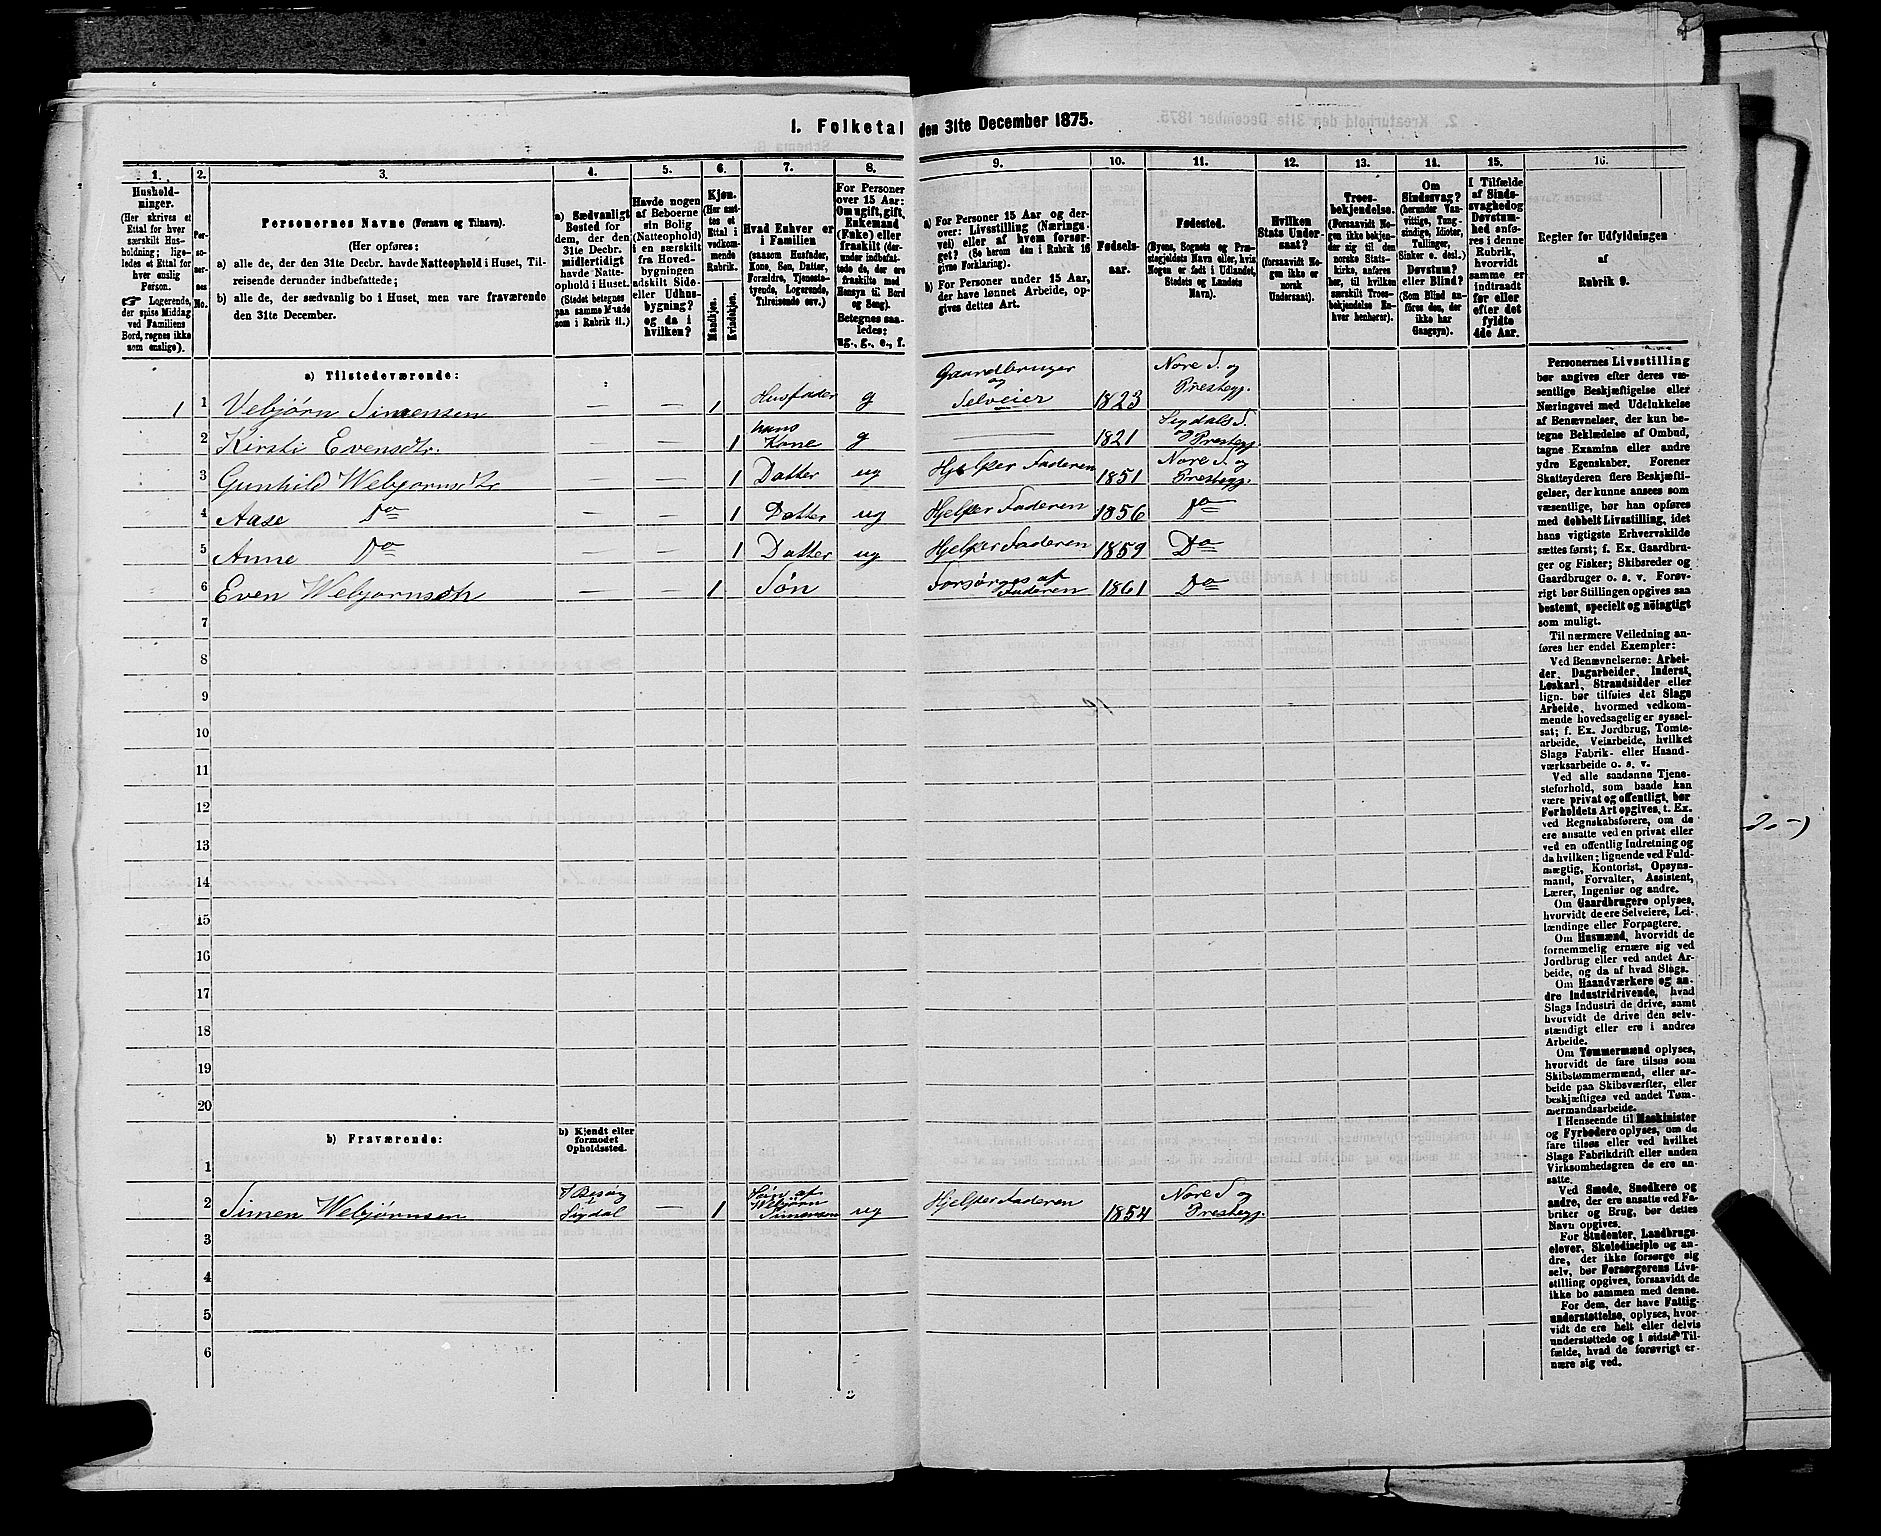 1. Folketal den 31te December 1875.
1. 2. 3. 4. 5. 6. 7. 8. 9. 10. 11. 12. 13. 14. 15. 16.
Hushold-
ninger.
(Her skrives et
Ettal for hver
særskilt Hus-
holdning; lige-
ledes et Ettal for
hver enslig
Person.
Logerende,
der spise Middag
ved Familiens
Bord, regnes ikke
som enslige).
Per-
so-
ner-
nes
No.
Personernes Navne (Fornavn og Tilnavn).
(Her opføres:
a) alle de, der den 31te Decbr. havde Natteophold i Huset, Til-
reisende derunder indbefattede;
b) alle de, der sædvanlig bo i Huset, men vare fraværende
den 31te December.
a) Sædvanligt
Bosted for
dem, der den
31te Decbr.
midlertidigt
havde Natte-
ophold i Huset.
(Stedet betegnes
paa samme Maade
som i Rubrik 11.)
Havde nogen
af Beboerne
sin Bolig
(Natteophold)
i en særskilt
fra Hoved-
bygningen
adskilt Side-
eller Udhus-
bygning?
og da i
hvilken?
Kjøn.
(Her sæt-
tes et
Ettal i
vedkom-
mende
Rubrik.
Mandkjøn.
Kvindekjøn.
Hvad Enhver er
i Familien
(saasom Husfader,
Kone, Søn, Datter,
Forældre, Tjeneste-
tyende, Logerende,
Tilreisende osv.)
For Personer
over 15 Aar:
Om ugift, gift,
Enkemand
(Enke) eller
fraskilt (der-
under indbefat-
tede de, der ere
fraskilte med
Hensyn til Bord
og Seng).
Betegnes saa-
ledes:
ug., g., e., f.
a) For Personer 15 Aar og der-
over: Livsstilling (Nærings-
vei) eller af hvem forsør-
get? (Se herom den i Rubrik 16
givne Forklaring).
b) For Personer under 15 Aar,
der have lønnet Arbeide, op-
gives dettes Art.
Fødsels-
aar.
Fødested.
(Byens, Sognets og Præ-
stegjeldets Navn eller, hvis
Nogen er født i Udlandet,
Stedets og Landets
Navn).
Hvilken
Stats Under-
saat?
(forsaavidt No-
gen ikke er
norsk
Undersaat).
Troes-
bekjendelse.
(Forsaavidt No-
gen ikke bekjen-
der sig til den
norske Stats-
kirke, anføres
her, til hvilken
særskilt Troes-
bekjendelse En-
hver henhører).
Om
Sindssvag?
(herunder Van-
vittige, Tung-
sindige, Idioter,
Tullinger,
Sinker o. desl.)
Døvstum?
eller Blind?
(Som Blind an-
føres den, der
ikke har
Gangsyn).
I Tilfælde
af Sinds-
svaghed og
Døvstum-
hed anfø-
res i denne
Rubrik,
hvorvidt
samme er
indtraadt
før eller
efter det
fyldte
4de Aar.
Regler for Udfyldningen
af
Rubrik 9.
a) Tilstedeværende:
1 1 Vebjørn Simensen — — 1 Husfader g Gaardbruger og Selveier 1823 Nore S. og Prestegj.
2 Kirsti Evensdtr. — — 1 hans Kone g — 1821 Sigdals S. og Prestegj.
3 Gunhild Webjørnsdtr — — 1 Datter ug Hjelper Faderen 1851 Nore S. og Prestegj.
4 Aase Do — — 1 Datter ug Hjelper Faderen 1856 Do
5 Anne Do — — 1 Datter ug Hjelper Faderen 1859 Do
6 Even Webjørnsøn — — 1 Søn Forsørges af Faderen 1861 Do
7
8
9
10
11
12
13
14
15
16
17
18
19
20
b) Fraværende:
b) Kjendt eller
formodet
Opholdssted.
1
2 Simen Webjørnsen I Besøg i Sigdal — 1 Søn af Webjørn Simensen ug Hjelper Faderen 1854 Nore S. og Prestegj.
3
4
5
6
Personernes Livsstilling
bør angives efter deres væ-
sentlige Beskjæftigelse eller
Næringsvei med Udelukkelse
af Benævnelser, der kun be-
tegne Beklædelse af Ombud,
tagne Examina eller andre
ydre Egenskaber. Forener
Skatteyderen flere Beskjæfti-
gelser, der kunne ansees som
væsentlige, bør han opføres
med dobbelt Livsstilling, idet
hans vigtigste Erhvervskilde
sættes først; f. Ex. Gaardbru-
ger og Fisker; Skibsreder og
Gaardbruger o. s. v. Forøv-
rigt bør Stillingen opgives saa
bestemt, specielt og nöiagtigt
som muligt.
Til nærmere Veiledning an-
føres her endel Exempler:
Ved Benævnelserne: Arbei-
der, Dagarbeider, Inderst,
Løskarl, Strandsidder eller
lign. bør tilføies det Slags
Arbeide, hvormed vedkom-
mende hovedsagelig er syssel-
sat; f. Ex. Jordbrug, Tomte-
arbeide, Veiarbeide, hvilket
Slags Fabrik- eller Haand-
værksarbeide o. s. v.
Ved alle saadanne Tjene-
steforhold, som baade kan
være privat og offentligt, bør
Forholdets Art opgives, t. Ex.
ved Regnskabsførere, om de
ere ansatte ved en privat eller
ved en offentlig Indretning og
da hvilken; lignende ved Fuld-
mægtig, Kontorist, Opsyns-
mand, Forvalter, Assistent,
Lærer, Ingeniør og andre.
Om Gaardbrugere oplyses,
hvorvidt de ere Selveiere, Lei-
lændinge eller Forpagtere.
Om Husmænd, hvorvidt de
fornemmelig ernære sig ved
Jordbrug eller ved andet Ar-
beide, og da af hvad Slags.
Om Haandværkere og an-
dre Industridrivende, hvad
Slags Industri de drive, samt
hvorvidt de drive den selv-
stændigt eller ere i andres
Arbeide.
Om Tømmermænd oplyses,
hvorvidt de fare tilsøs som
Skibstømmermænd, eller ar-
beide paa Skibsværfter, eller
beskjæftiges ved andet Tøm-
mermandsarbeide.
I Henseende til Maskinister
og Fyrbødere oplyses, om de
fare tilsøs eller ved hvilket
Slags Fabrikdrift eller anden
Virksomhedsgren de ere an-
satte.
Ved Smede, Snedkere og
andre, der ere ansatte ved Fa-
briker og Brug, bør dettes
Navn opgives.
For Studenter, Landbrugs-
elever, Skoledisciple og an-
dre, der ikke forsørge sig
selv, bør Forsørgerens Livs-
stilling opgives, forsaavidt de
ikke bo sammen med denne.
For dem, der have Fattig-
understøttelse, oplyses, hvor-
vidt de ere helt eller delvis
understøttede og i sidste Til-
fælde, hvad de forøvrigt er-
nære sig ved.